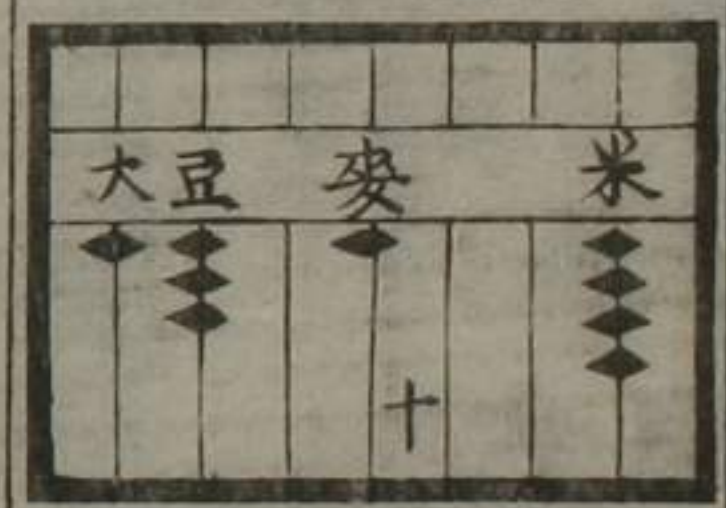 大豆 麥 米
十